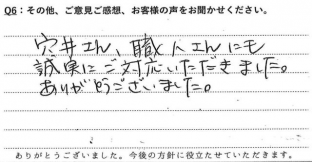 Q6：その他、ご意見ご感想、お客様の声をお聞かせください。
穴井さん、職人さんにも
誠実にご対応いただきました。
ありがとうございました。
ありがとうございました。今後の方針に役立たせていただきます。